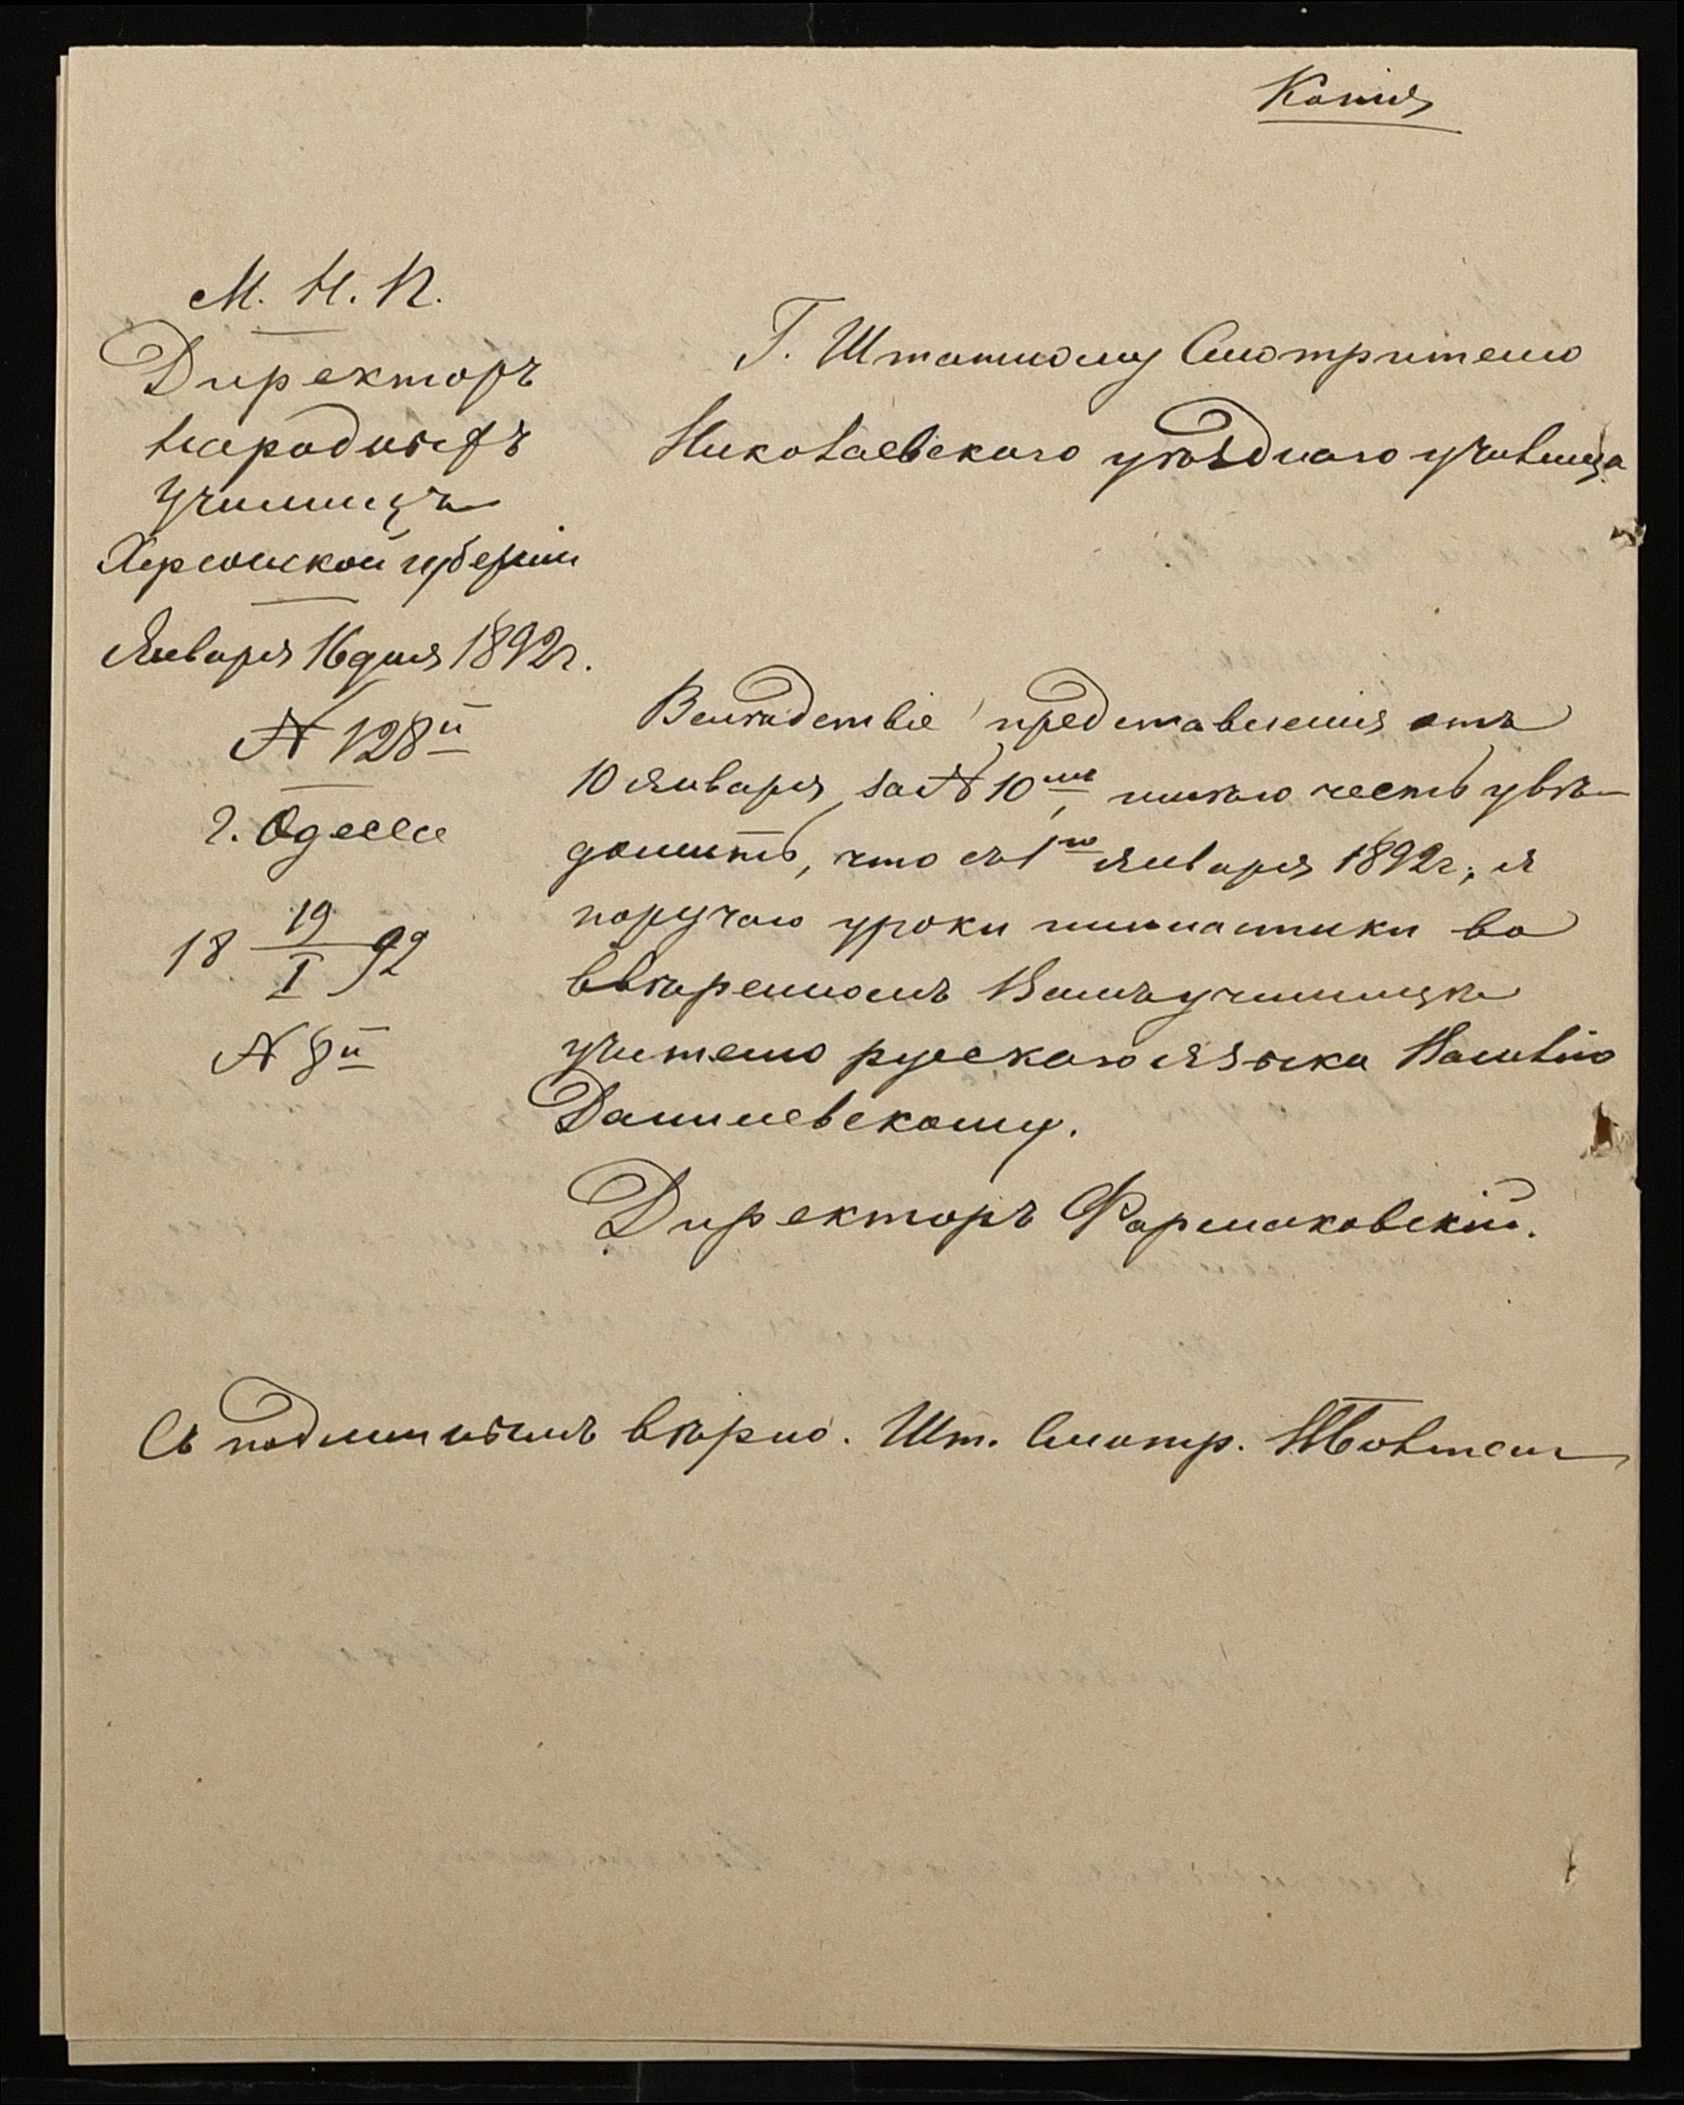 Копія
М. Н. П.
Директоръ
народныхъ
училищъ
Херсонской губерніи
Января 16 дня 1892 г.
№ 128й
г. Одесса
18 19/I 92
№ 8й
Г. Штатному Смотрителю
Николаевскаго уѣзднаго училища
Вслѣдствіе представленія отъ
10 Января, за № 10мъ, имѣю честь увѣ-
домить, что съ 1го Января 1892 г., я
поручаю уроки гимнастики во
ввѣренномъ Вамъ училищѣ
учителю русскаго языка
Данилевскому.
Директоръ Фармаковскій.
Съ подлиннымъ вѣрно. Шт. Смотр.